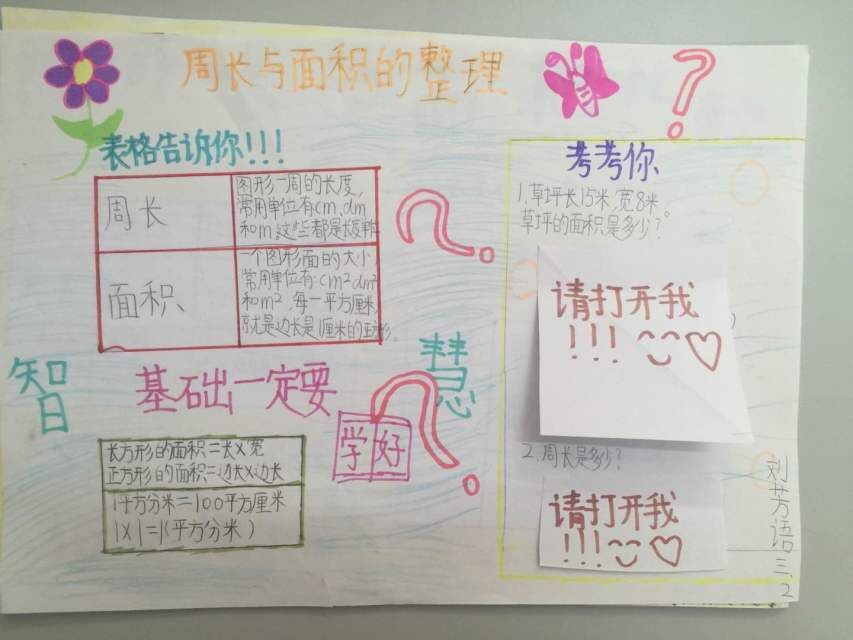 周长与面积的整理
?
表格告诉你!!!
周长
图形一周的长度,
常用单位有cm,dm
和m,这些都是长度单位
面积
一个图形面的大小
常用单位有:cm²dm²
和m²,每一平方厘米,
就是边长是1厘米的正方形。
?
智
慧
基础一定要
学好
?
长方形的面积=长×宽
正方形的面积=边长×边长
1平方分米=100平方厘米
1×1=1(平方分米)
考考你
1.草坪长15米,宽8米。
草坪的面积是多少?
请打开我
!!!
2.周长是多少?
请打开我
!!!
刘芳语 三、2